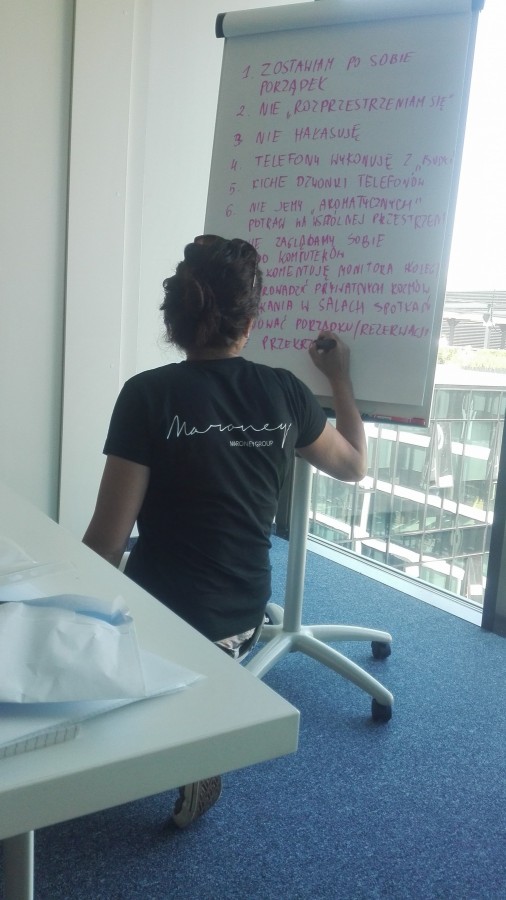 1. ZOSTAWIAM PO SOBIE
PORZĄDEK
2. NIE „ROZPRZESTRZENIAM SIĘ"
3. NIE HAŁASUJĘ
4. TELEFONY WYKONUJĘ Z
5. CICHE DZWONKI TELEFONÓW
6. NIE JEMY „AROMATYCZNYCH"
POTRAW NA WSPÓLNEJ PRZESTRZENI
ZAGLĄDAMY SOBIE
DO KOMPUTERÓW
KOMENTUJĘ MONITORA
PRYWATNYCH
W SALACH SPOTKAŃ
PORZĄDKU/REZERWACJI
Maroney
MARONEY GROUP